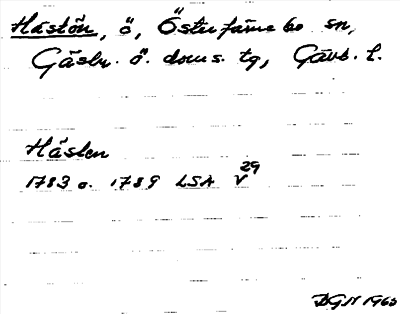 Hästön, ö, Österfärnebo sn,
Gästr. ö. doms. tg, Gävb. l.
Hästen
1783 o. 1789 LSA V29
DGN 1965